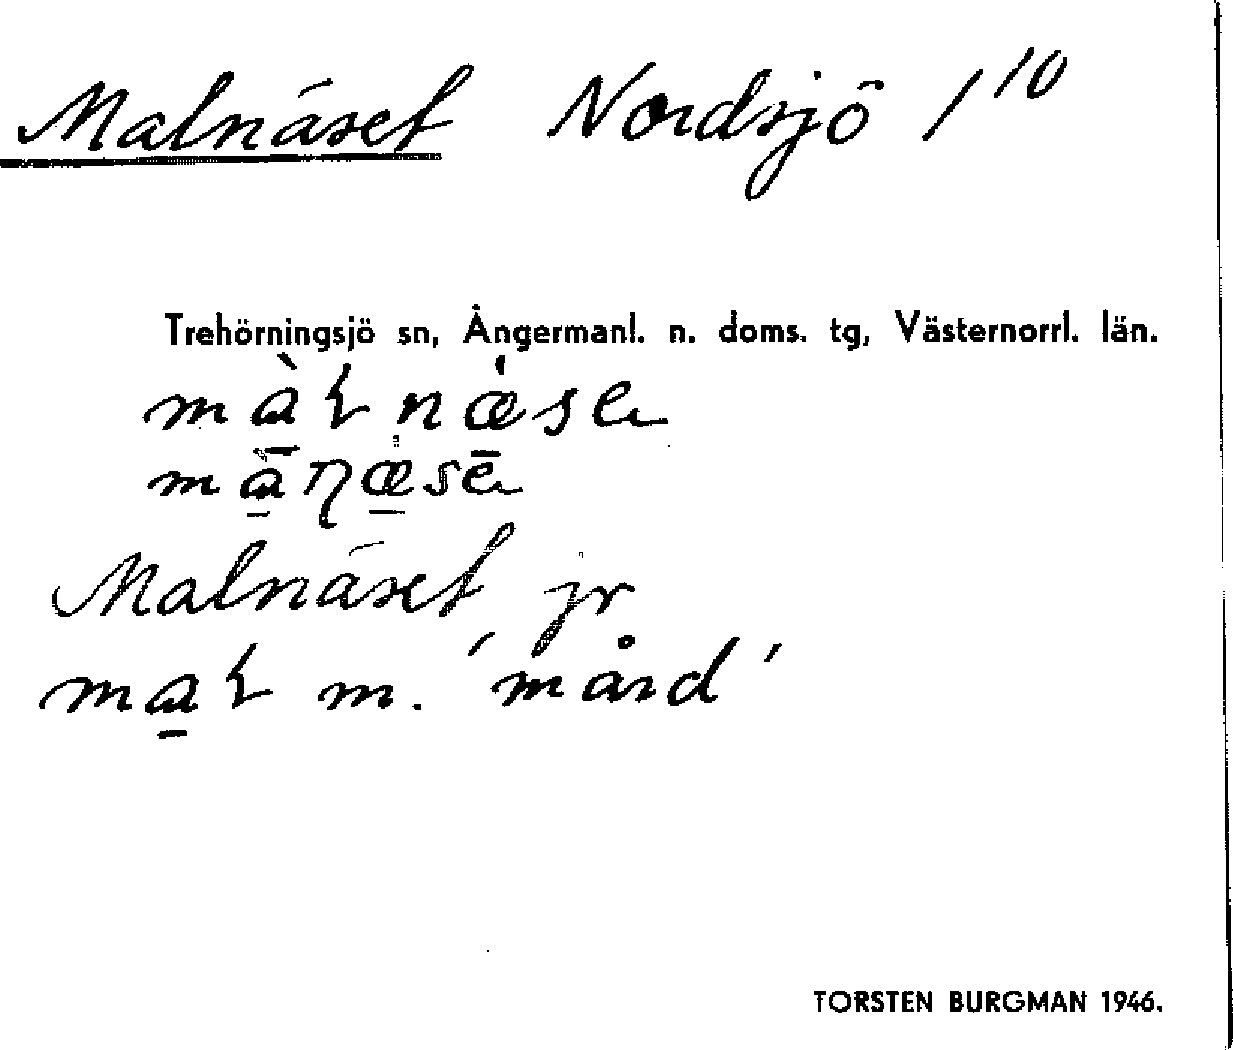 Malnäset Nordsjö 1¹⁰
Trehörningsjö sn, Ångermanl. n. doms. tg, Västernorrl. län.
Malnäset jr
maɽ m. 'mård'
TORSTEN BURGMAN 1946.